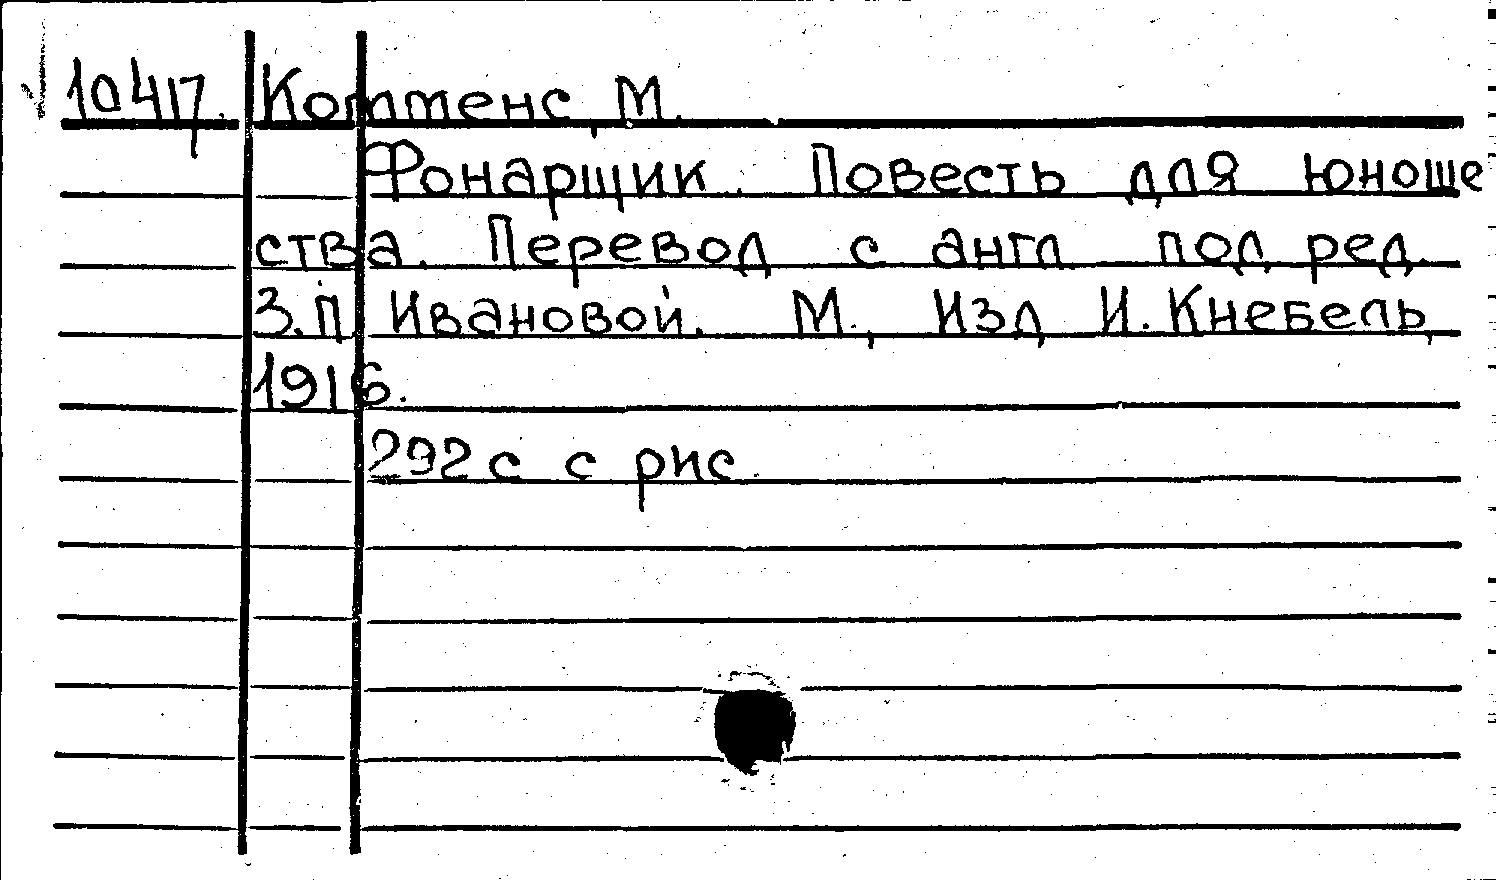 10417. Комменс, М.
Фонарщик. Повесть для юноше
ства. Перевод с англ под ред.
З.П. Ивановой. М., Изд. И. Кнебель,
1916.
292 с с рис.